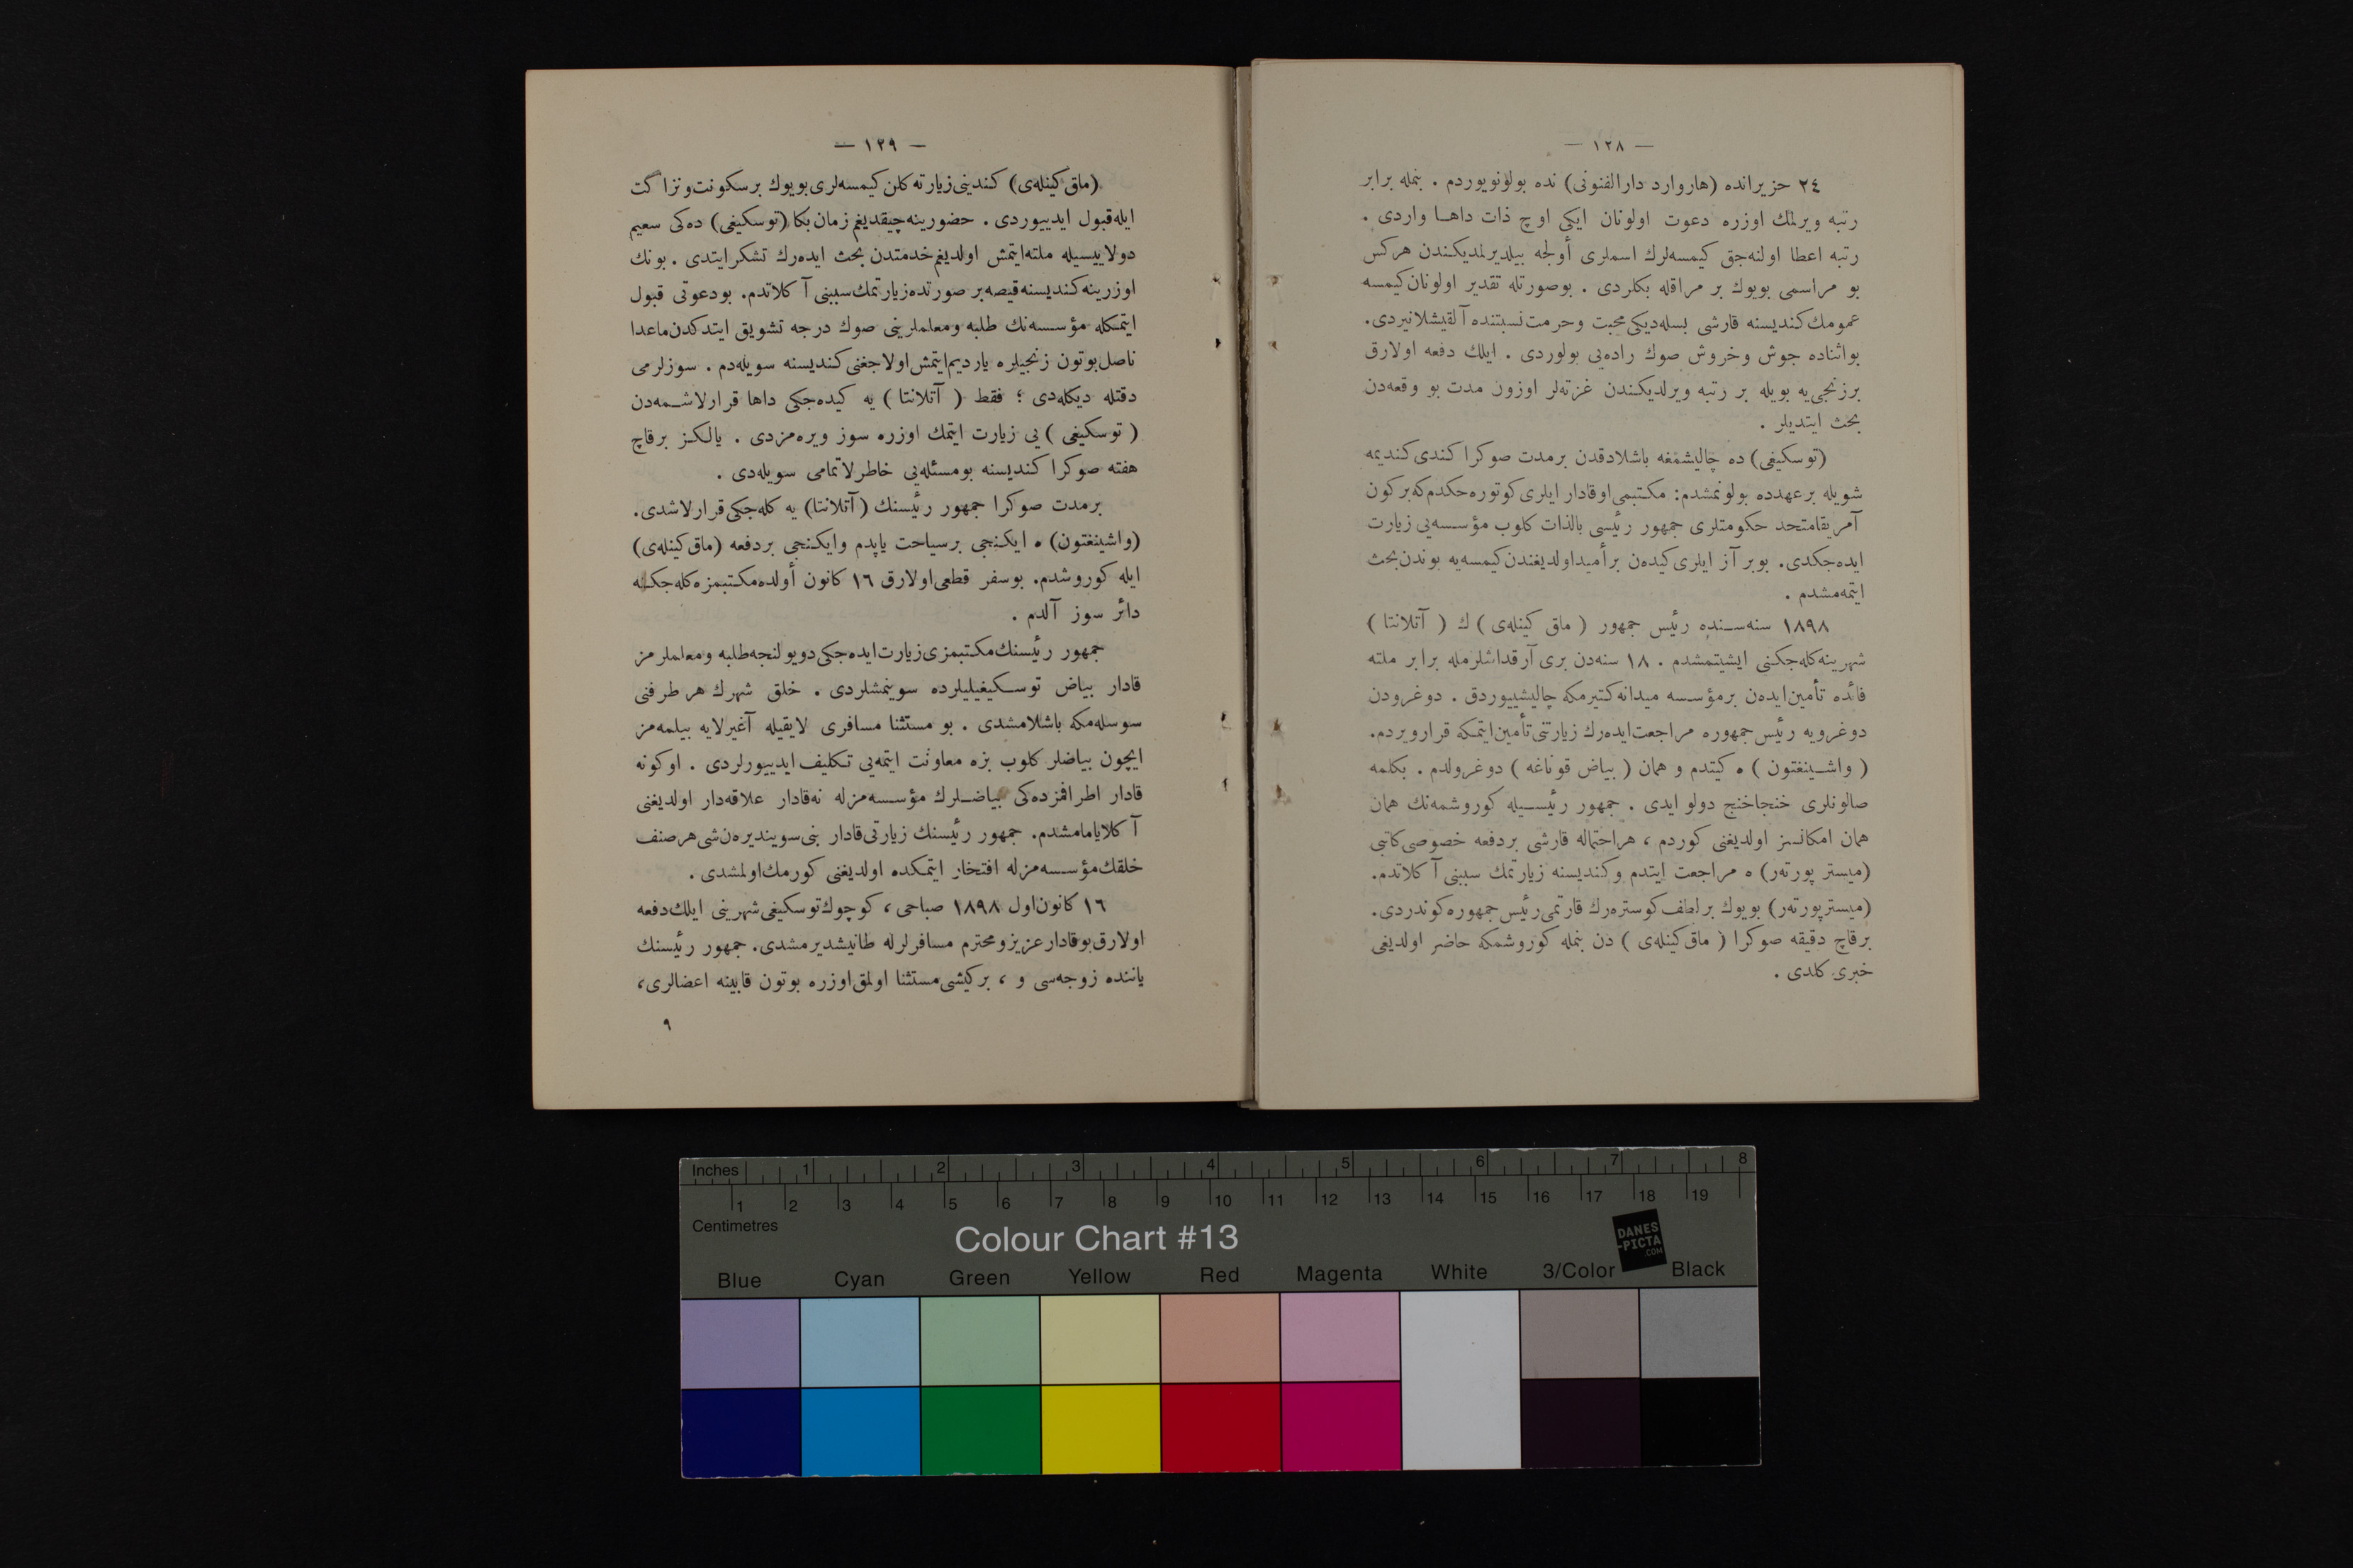 — ١٢٨ —
٢٤ حزيرانده (هاروارد دارالفنونی) نده بولونويوردم . بنمله برابر
رتبه ويرلمك اوزره دعوت اولونان ايكی اوچ ذات داهـا واردی .
رتبه اعطا اولنه‌جق كيمسه‌لرك اسملری أولجه بيلديرلمديكندن هركس
بو مراسمی بويوك بر مراقله بكلردی . بوصورتله تقدير اولونان كيمسه
عمومك كنديسنه قارشی بسله‌ديكی محبت وحرمت نسبتنده آلقيشلانيردی.
بواثناده جوش وخروش صوك راده‌يی بولوردی . ايلك دفعه اولارق
برزنجی‌يه بويله بر رتبه ويرلديكندن غزته‌لر اوزون مدت بو وقعه‌دن
بحث ايتديلر .
(توسكيغی) ده چاليشمغه باشلادقدن برمدت صوكرا كندی كنديمه
شويله برعهدده بولونمشدم: مكتبمی اوقادار ايلری كوتوره‌جكدم كه بركون
آمريقا متحد حكومتلری جمهور رئيسی بالذات كلوب مؤسسه‌يی زيارت
ايده‌جكدی. بوبر آز ايلری كيده‌ن برأميد اولديغندن كيمسه‌يه بوندن بحث
ايتمه‌مشدم .
١٨٩٨ سنه‌سـنده رئيس جمهور ( ماق كينله‌ی ) ك ( آتلانتا )
شهرينه كله‌جكنی ايشيتمشدم . ١٨ سنه‌دن بری آرقداشلرمله برابر ملته
فائده تأمين ايده‌ن برمؤسسه ميدانه كتيرمكه چاليشييوردق . دوغرودن
دوغرويه رئيس جمهوره مراجعت ايده‌رك زيارتنی تأمين ايتمكه قرارويردم.
( واشـينغتون ) ه كيتدم و همان ( بياض قوناغه ) دوغرولدم . بكلمه
صالونلری خنجاخنج دولو ايدی . جمهور رئيسـيله كوروشمه‌نك همان
همان امكانسز اولديغنی كوردم ، هراحتماله قارشی بردفعه خصوصی كاتبی
(ميستر پورته‌ر) ه مراجعت ايتدم وكنديسنه زيارتمك سببنی آكلاتدم.
(ميستر پورته‌ر) بويوك برلطف كوستره‌رك قارتمی رئيس جمهوره كوندردی.
برقاچ دقيقه صوكرا ( ماق كينله‌ی ) دن بنمله كوروشمكه حاضر اولديغی
خبری كلدی .
— ١٢٩ —
(ماق كينله‌ی) كندينی زيارته كلن كيمسه‌لری بويوك برسكونت ونزاكت
ايله قبول ايدييوردی . حضورينه چيقديغم زمان بكا (توسكيغی) ده‌كی سعيم
دولاييسيله ملته ايتمش اولديغم خدمتدن بحث ايده‌رك تشكر ايتدی . بونك
اوزرينه كنديسنه قيصه بر صورتده زيارتمك سببنی آكلاتدم. بودعوتی قبول
ايتمكله مؤسسه‌نك طلبه ومعلملرينی صوك درجه تشويق ايتدكدن ماعدا
ناصل بوتون زنجيلره يارديم ايتمش اولاجغنی كنديسنه سويله‌دم . سوزلرمی
دقتله ديكله‌دی ؛ فقط ( آتلانتا ) يه كيده‌جكی داها قرارلاشـمه‌دن
( توسكيغی ) يی زيارت ايتمك اوزره سوز ويره‌مزدی . يالكـز برقاچ
هفته صوكرا كنديسنه بومسئله‌يی خاطرلاتمامی سويله‌دی .
برمدت صوكرا جمهور رئيسنك (آتلانتا) يه كله‌جكی قرارلاشدی.
(واشينغتون) ه ايكنجی برسياحت ياپدم وايكنجی بردفعه (ماق كينله‌ی)
ايله كوروشدم. بوسفر قطعی اولارق ١٦ كانون أولده مكتبمزه كله‌جكـه
دائر سوز آلدم .
جمهور رئيسنك مكتبمزی زيارت ايده‌جكی دويولنجه طلبه ومعلملرمز
قادار بياض توسـكيغيليلرده سوينمشلردی . خلق شهرك هر طرفنی
سوسله‌مكه باشلامشدی . بو مستثنا مسافری لايقيله آغيرلايه بيلمه‌مز
ايچون بياضلر كلوب بزه معاونت ايتمه‌يی تـكليف ايدييورلردی . اوكونه
قادار اطرافمزده‌كی بياضـلرك مؤسسه‌مزله نه‌قادار علاقه‌دار اولديغنی
آكلايامامشدم. جمهور رئيسنك زيارتی قادار بنی سوينديره‌ن شی هرصنف
خلقك مؤسسه‌مزله افتخار ايتمكده اولديغنی كورمك اولمشدی .
١٦ كانون اول ١٨٩٨ صباحی ، كوچوك توسكيغی شهرينی ايلك دفعه
اولارق بوقادار عزيز ومحترم مسافرلرله طانيشديرمشدی. جمهور رئيسنك
ياننده زوجه‌سی و ، بركيشی مستثنا اولمق اوزره بوتون قابينه اعضالری،
٩
Inches 1 2 3 4 5 6 7 8
1 2 3 4 5 6 7 8 9 10 11 12 13 14 15 16 17 18 19
Centimetres
Colour Chart #13
DANES
-PICTA
.COM
Blue Cyan Green Yellow Red Magenta White 3/Color Black